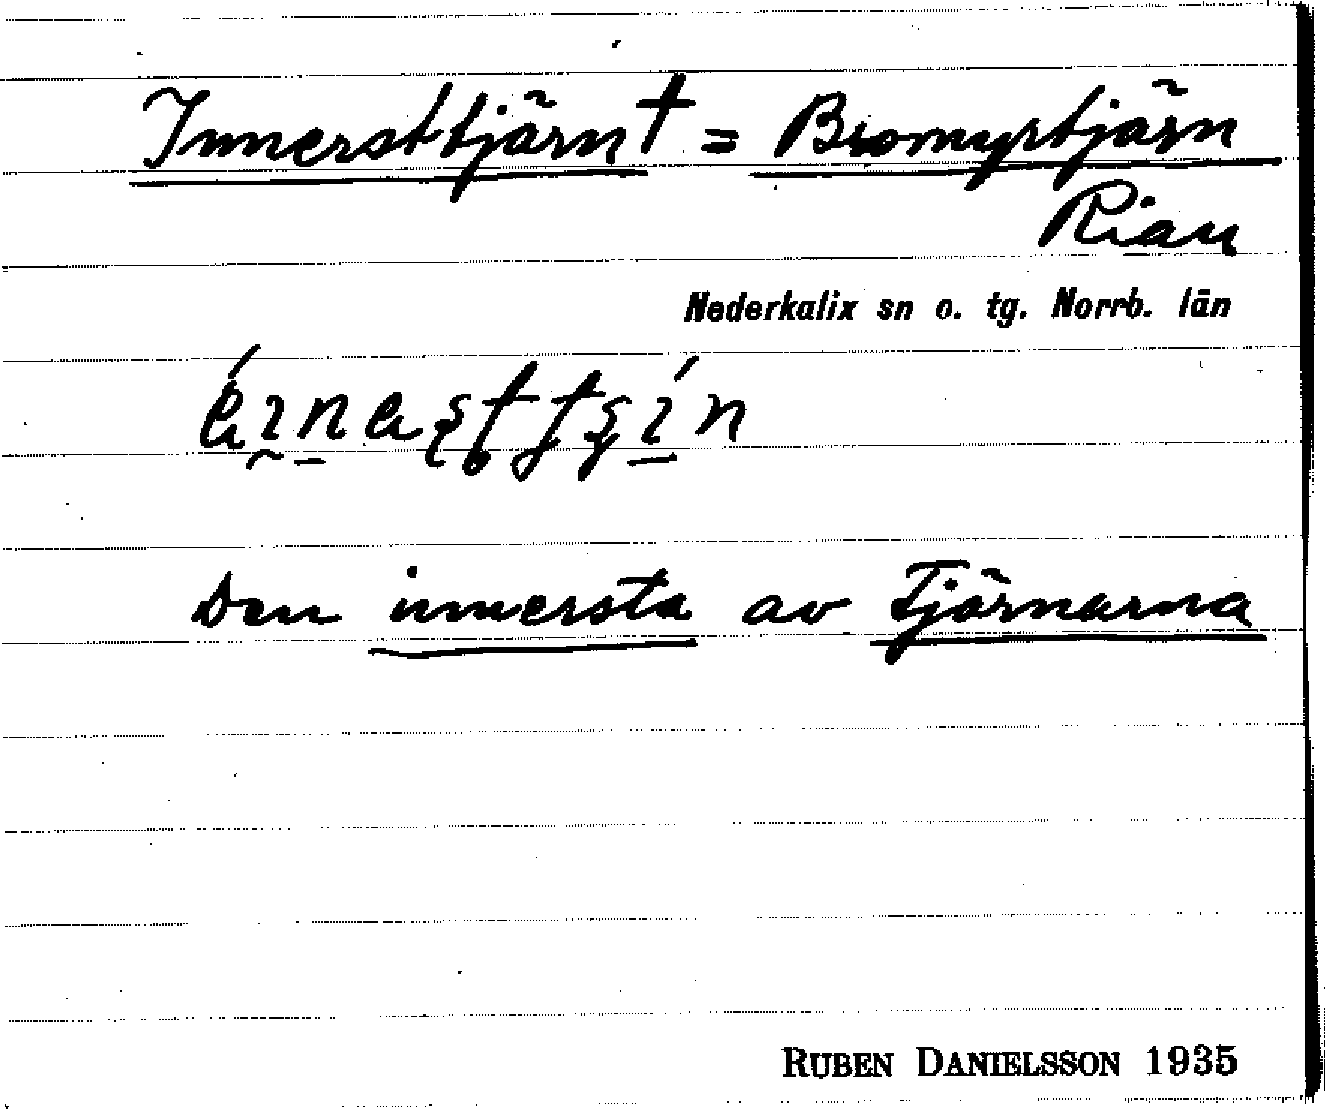 Innersttjärn † = Bromyrtjärn
Rian
Nederkalix sn o. tg. Norrb. län
Den innersta av Tjärnarna
RUBEN DANIELSSON 1935